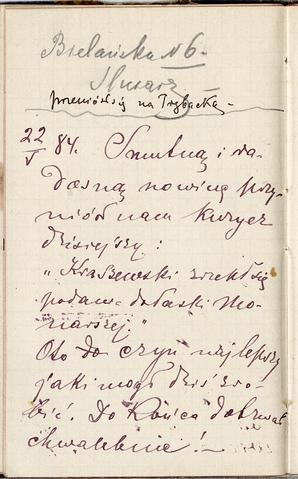 Bielańska N 6.
Ślusarz
przeniósł się na Trębacką –
22/V 84. Smutną i ra-
dosną nowinę przy-
niósł nam kuryer
dzisiejszy:
„Kraszewski zrzekł się
podania do łaski mo-
narszej."
Oto do czyn najlepszy
jaki mógł dziś zro-
bić. Do końca dotrwał
chwalebnie! –